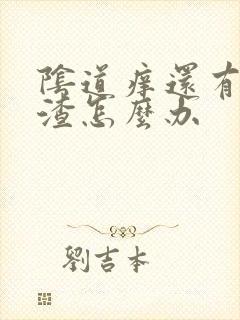 陰道痒還有
渣怎麼办
劉吉本